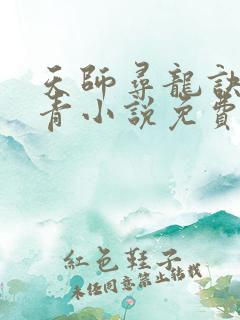 天師尋龍訣
青小說免費
紅色鞋子
未任同意禁止轉載